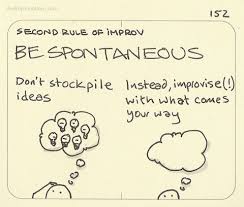 152
SECOND RULE OF IMPROV
BE SPONTANEOUS
Don't stockpile
ideas
Instead, improvise(!)
with what comes
your way